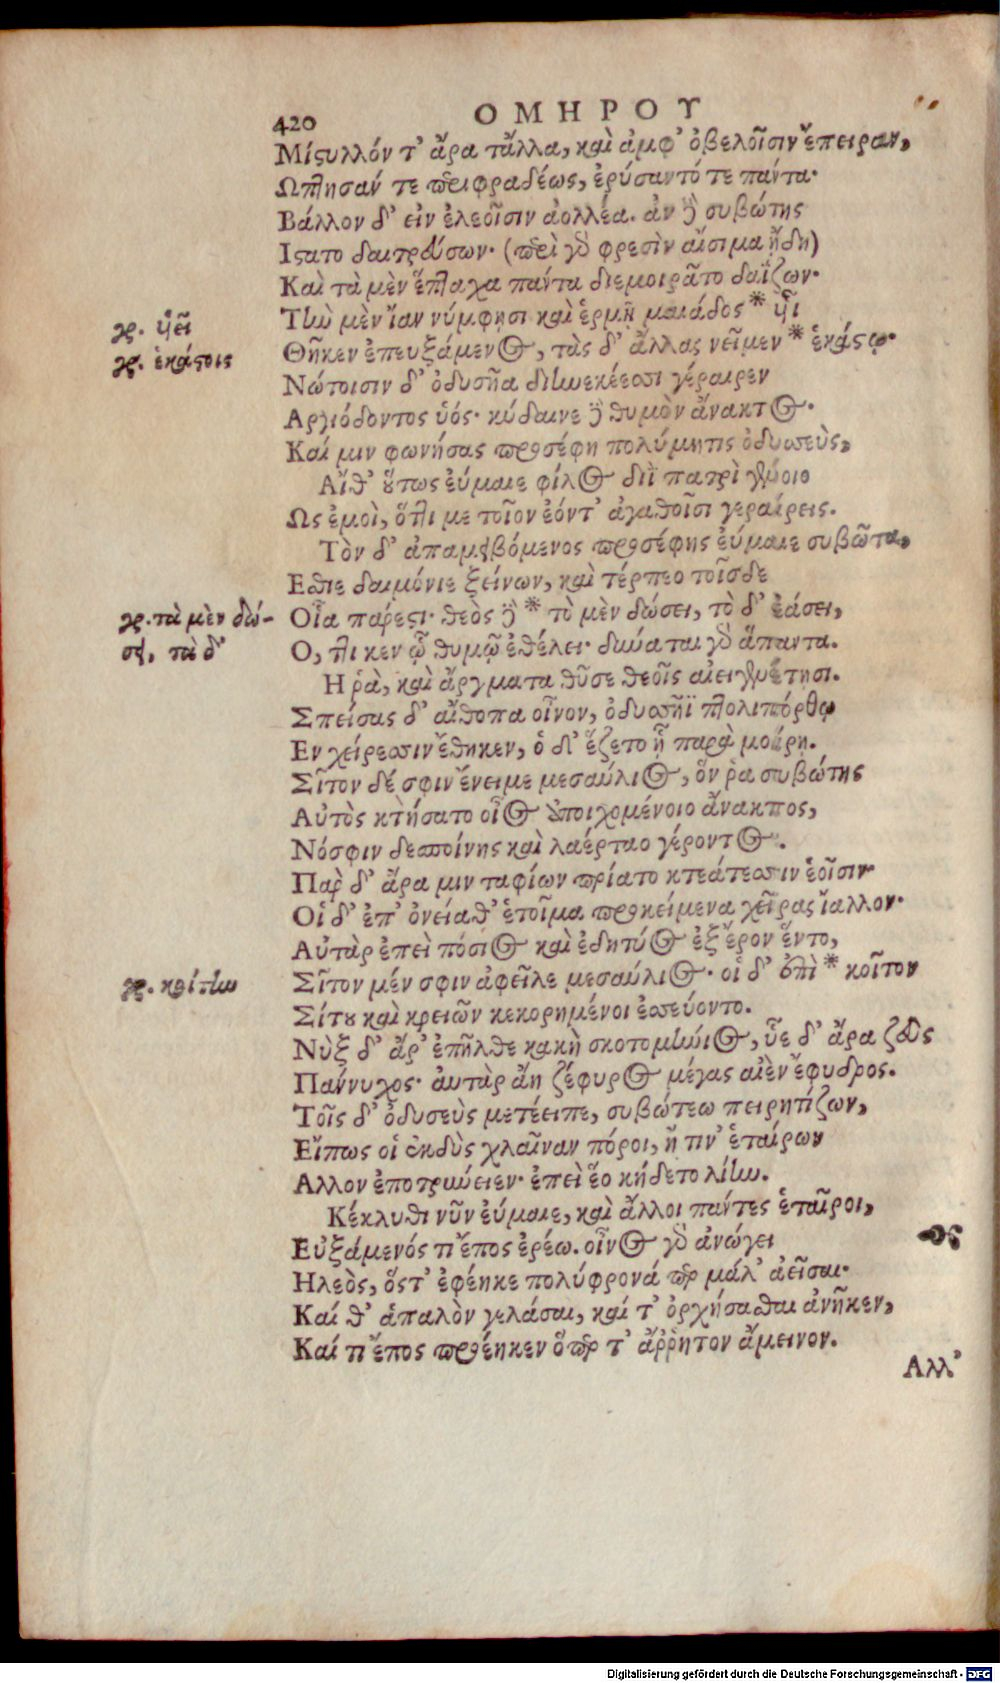 420
ΟΜΗΡΟΥ
Μίστυλλόν τ' ἄρα τἄλλα, καὶ ἀμφ' ὀβελοῖσιν ἔπειραν,
Ωπτησάν τε περιφραδέως, ἐρύσαντό τε πάντα·
Βάλλον δ' εἰν ἐλεοῖσιν ἀολλέα. ἀν δὲ συβώτης
Ιστατο δαιτρεύσων· (περὶ γὰρ φρεσὶν αἴσιμα ᾔδη)
Καὶ τὰ μὲν ἕπταχα πάντα διεμοιρᾶτο δαΐζων·
γρ. ᾑεῖ
Τὴν μὲν ἴαν νύμφησι καὶ ἑρμῇ μαιάδος * ᾗι
γρ. ἑκάστοις
Θῆκεν ἐπευξάμενος, τὰς δ' ἄλλας νεῖμεν * ἑκάστῳ·
Νώτοισιν δ' ὀδυσῆα διηνεκέεσσι γέραιρεν
Αργιόδοντος ὑός· κύδαινε δὲ θυμὸν ἄνακτος.
Καί μιν φωνήσας προσέφη πολύμητις ὀδυσσεὺς,
Αἴθ' οὕτως εὔμαιε φίλος διῒ πατρὶ γένοιο
Ως ἐμοὶ, ὅττι με τοῖον ἐόντ' ἀγαθοῖσι γεραίρεις.
Τὸν δ' ἀπαμειβόμενος προσέφης εὔμαιε συβῶτα,
Εσθιε δαιμόνιε ξείνων, καὶ τέρπεο τοῖσδε
γρ. τὰ μὲν δώ-
Οἷα πάρεστι· θεὸς δὲ * τὸ μὲν δώσει, τὸ δ' ἐάσει,
σει, τὰ δ'
Ο, ττι κεν ᾧ θυμῷ ἐθέλει· δύναται γὰρ ἅπαντα.
Η ῥὰ, καὶ ἄργματα θῦσε θεοῖς αἰειγενέτησι.
Σπείσας δ' αἴθοπα οἶνον, ὀδυσσῆϊ πτολιπόρθῳ
Εν χείρεσσιν ἔθηκεν, ὁ δ' ἕζετο ᾗ παρὰ μοίρῃ.
Σῖτον δέ σφιν ἔνειμε μεσαύλιος, ὅν ῥα συβώτης
Αὐτὸς κτήσατο οἶος ἀποιχομένοιο ἄνακτος,
Νόσφιν δεσποίνης καὶ λαέρταο γέροντος.
Πὰρ δ' ἄρα μιν ταφίων πρίατο κτεάτεσσιν ἑοῖσιν
Οἱ δ' ἐπ' ὀνείαθ' ἑτοῖμα προκείμενα χεῖρας ἴαλλον·
Αὐτὰρ ἐπεὶ πόσιος καὶ ἐδητύος ἐξ ἔρον ἕντο,
γρ. κοίτην
Σῖτον μέν σφιν ἀφεῖλε μεσαύλιος· οἱ δ' ἐπὶ * κοῖτον
Σίτου καὶ κρειῶν κεκορημένοι ἐσσεύοντο.
Νὺξ δ' ἄρ' ἐπῆλθε κακὴ σκοτομήνιος, ὗε δ' ἄρα ζεὺς
Παννυχος· αὐτὰρ ἄη ζέφυρος μέγας αἰὲν ἔφυδρος.
Τοῖς δ' ὀδυσεὺς μετέειπε, συβώτεω πειρητίζων,
Εἴπως οἱ ἐκδὺς χλαῖναν πόροι, ἤ τιν' ἑταίρων
Αλλον ἐποτρύνειεν· ἐπεὶ ἕο κήδετο λίην.
Κέκλυθι νῦν εὔμαιε, καὶ ἄλλοι πάντες ἑταῖροι,
Εὐξάμενός τι ἔπος ἐρέω. οἶνος γὰρ ἀνώγει
Ηλεὸς, ὅστ' ἐφέηκε πολύφρονά περ μάλ' ἀεῖσαι·
Καί θ' ἁπαλὸν γελάσαι, καί τ' ὀρχήσασθαι ἀνῆκεν,
Καί τι ἔπος προέηκεν ὅπερ τ' ἄῤῥητον ἄμεινον.
Αλλ'
Digitalisierung gefördert durch die Deutsche Forschungsgemeinschaft - DFG